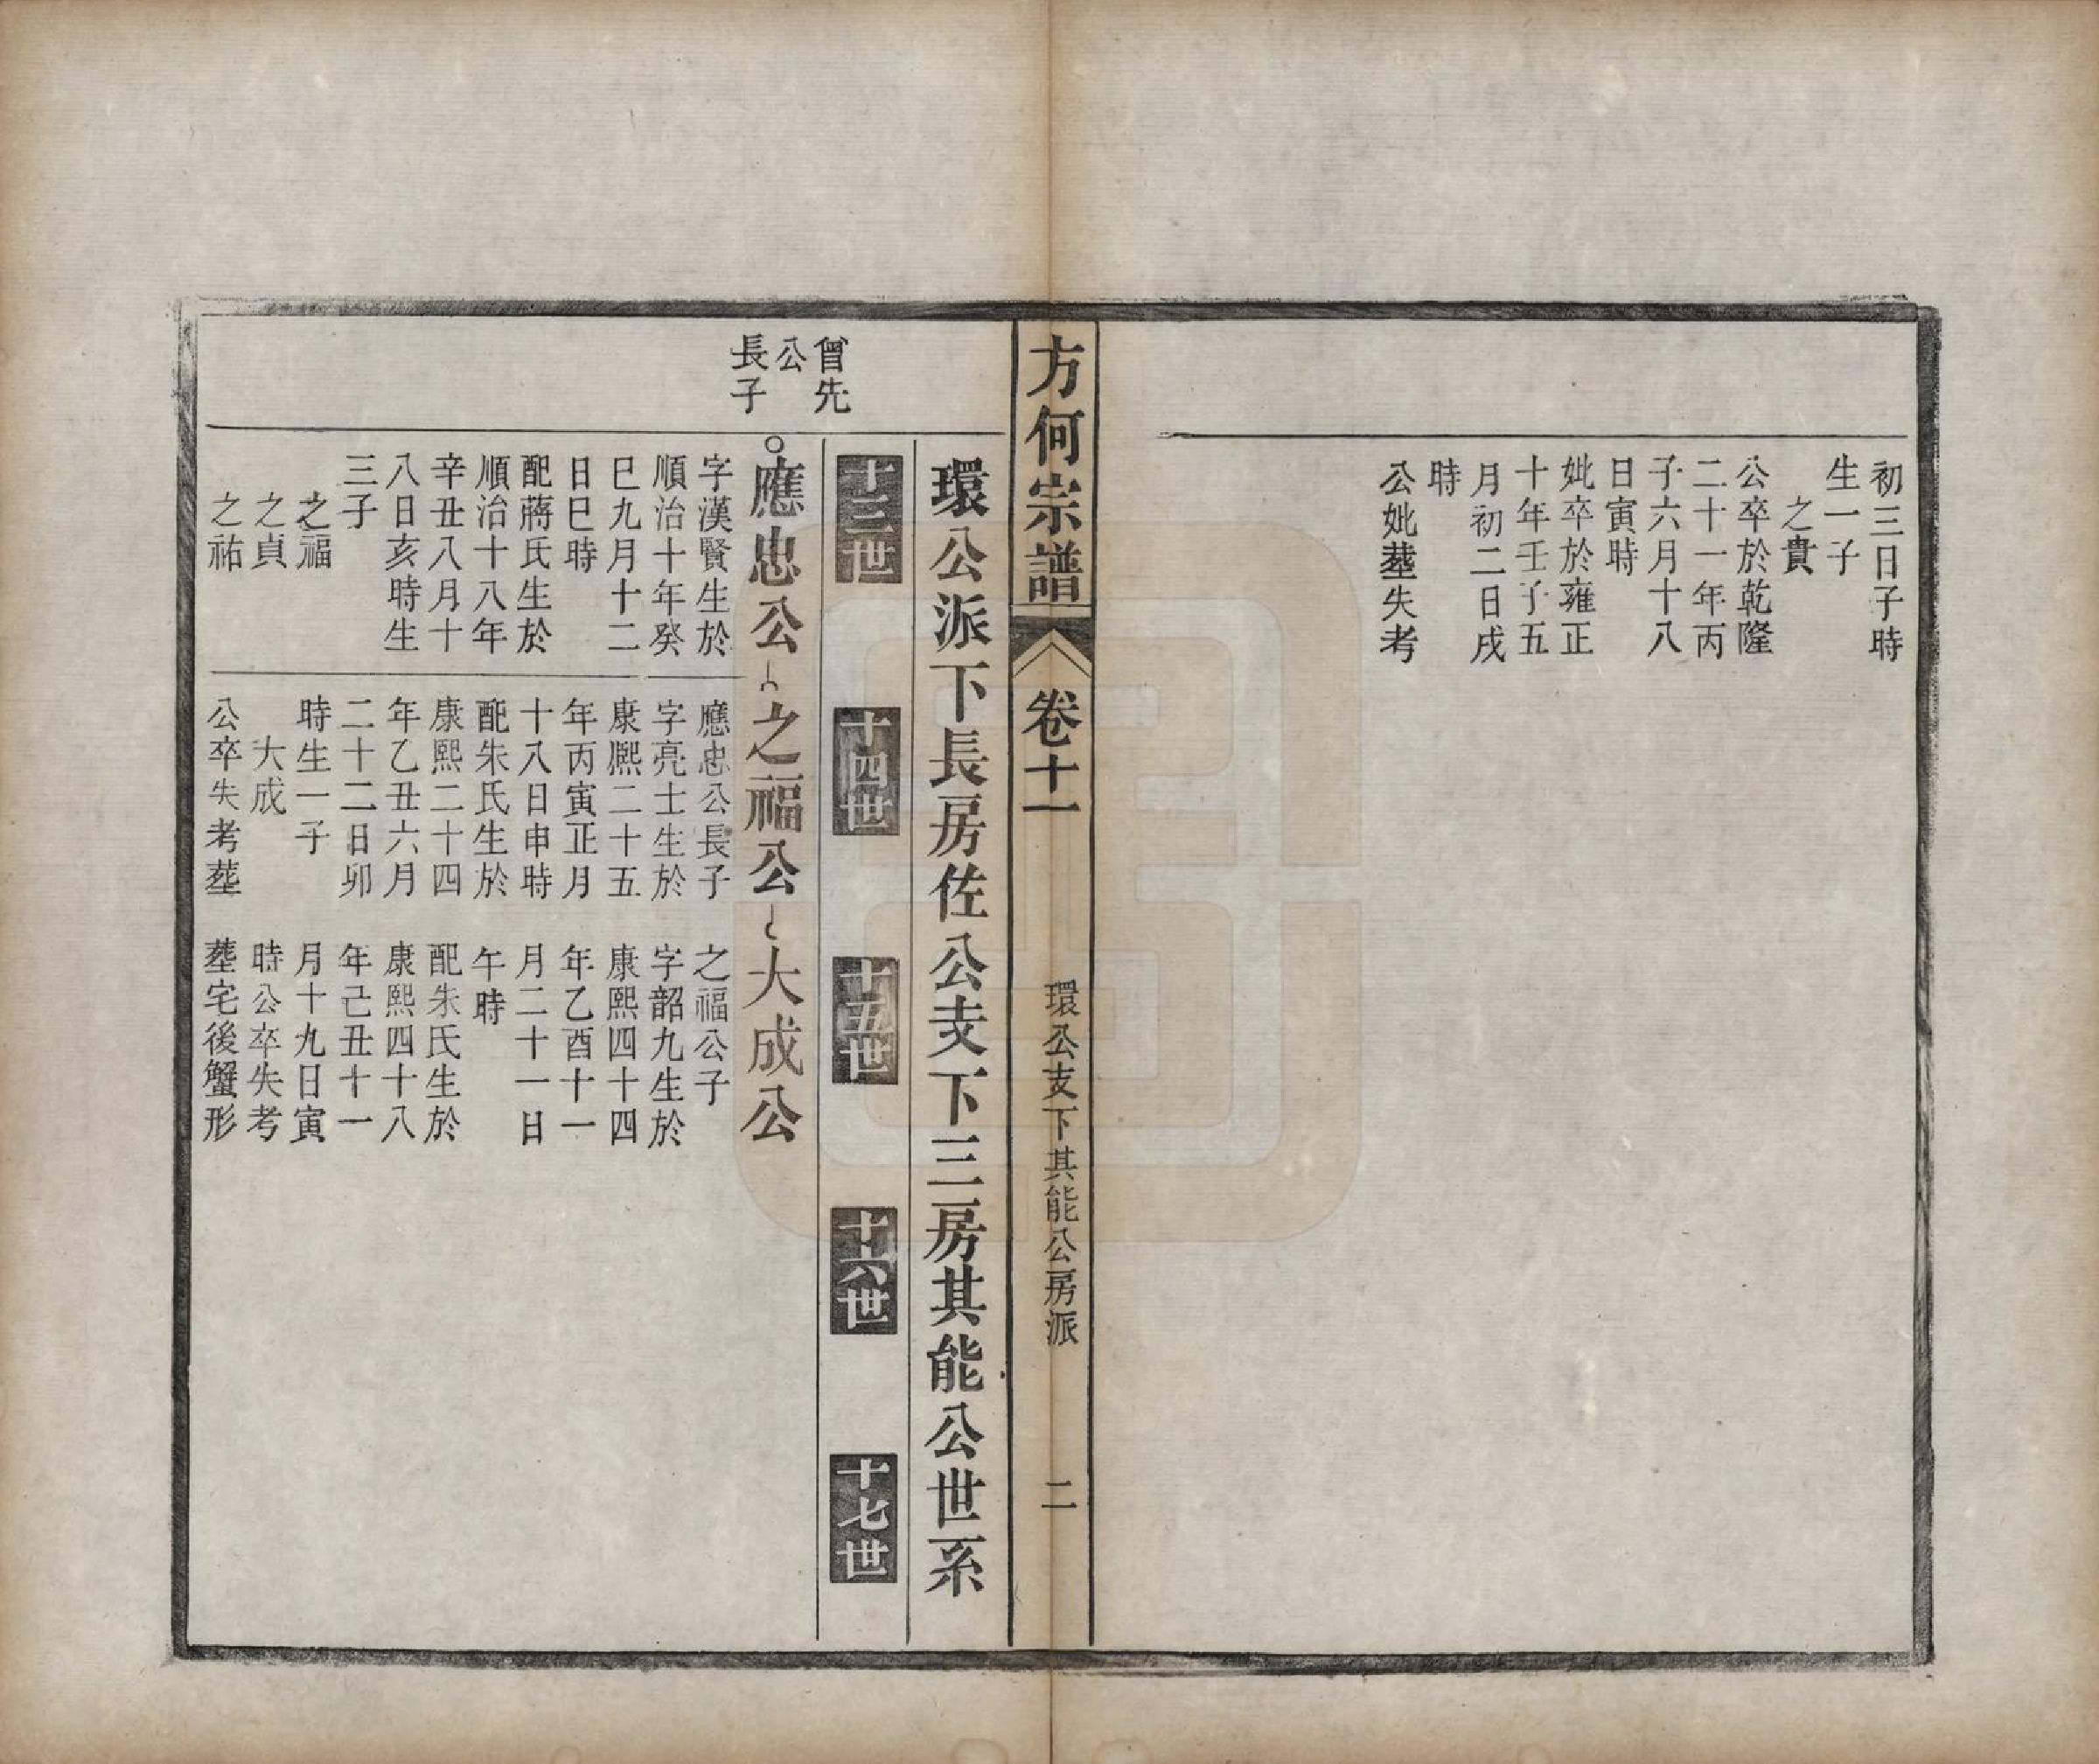 初三日子時
生一子
之貴
公卒於乾隆
二十一年丙
子六月十八
日寅時
妣卒於雍正
十年壬子五
月初二日戌
時
公妣塟失考
方何宗譜
卷十一
環公支下其能公房派
二
環公派下長房佐公支下三房其能公世系
十三世
十四世
十五世
十六世
十七世
曾先
公
長子
應忠公
之福公
大成公
字漢賢生於
順治十年癸
巳九月十二
日巳時
配蔣氏生於
順治十八年
辛丑八月十
八日亥時生
三子
之福
之貞
之祐
應忠公長子
字亮士生於
康熙二十五
年丙寅正月
十八日申時
配朱氏生於
康熙二十四
年乙丑六月
二十二日卯
時生一子
大成
公卒失考塟
之福公子
字韶九生於
康熙四十四
年乙酉十一
月二十一日
午時
配朱氏生於
康熙四十八
年己丑十一
月十九日寅
時公卒失考
塟宅後蟹形